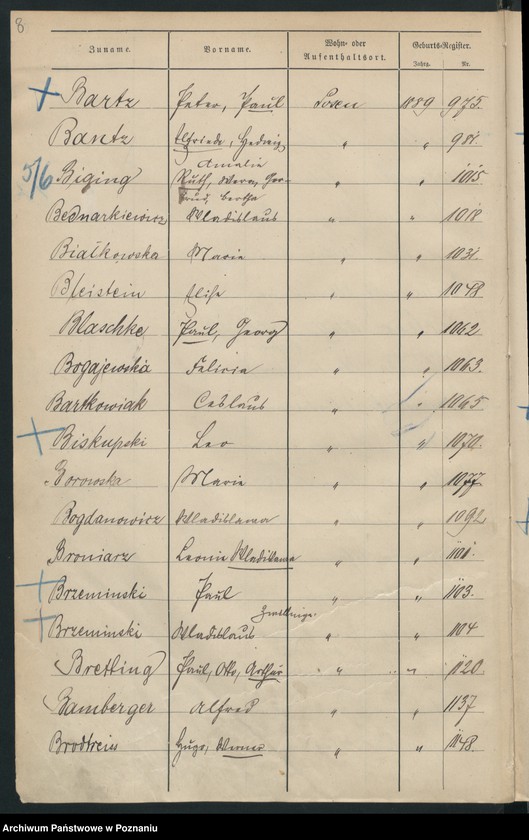 8
Zuname. Vorname. Wohn- oder Aufenthaltsort. Geburts-Register.
Jahrg. Nr.
Bartz Peter, Paul Posen 1889 975.
Bantz Elfriede, Hedwig " " 981.
Amalie
5/6 Biging Ruth, Wera, Ger- " " 1015
trud, Bertha
Bednarkiewicz Wladislaus " " 1018
Białkowska Marie " " 1031.
Bleistein Elise " " 1048
Blaschke Paul, Georg " " 1062
Bogajewska Felicia " " 1063.
Bartkowiak Ceslaus " " 1065
Biskupski Leo " " 1070.
Borowska Marie " " 1077
Bogdanowicz Wladislawa " " 1092
Broniarz Leonie Wladislawa " " 1101.
Brzeminski Paul " " 1103.
Zwillinge.
Brzeminski Wladislaus " " 1104
Bretling Paul, Otto, Arthur " " 1120
Bamberger Alfred " " 1137
Brodtreiss Hugo, Werner " " 1148.
Archiwum Państwowe w Poznaniu